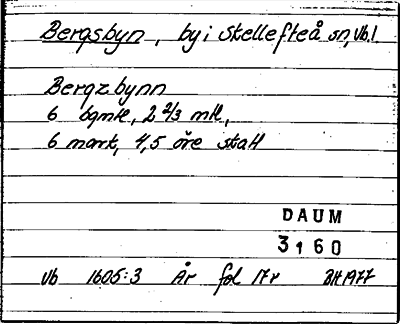 Bergsbyn, by i Skellefteå sn, Vb.l.
Bergzbynn
6 bgmtl, 2 2/3 mtl,
6 mark, 4,5 öre skatt
DAUM
3160
Vb 1605:3 År fol 17v BH 1977